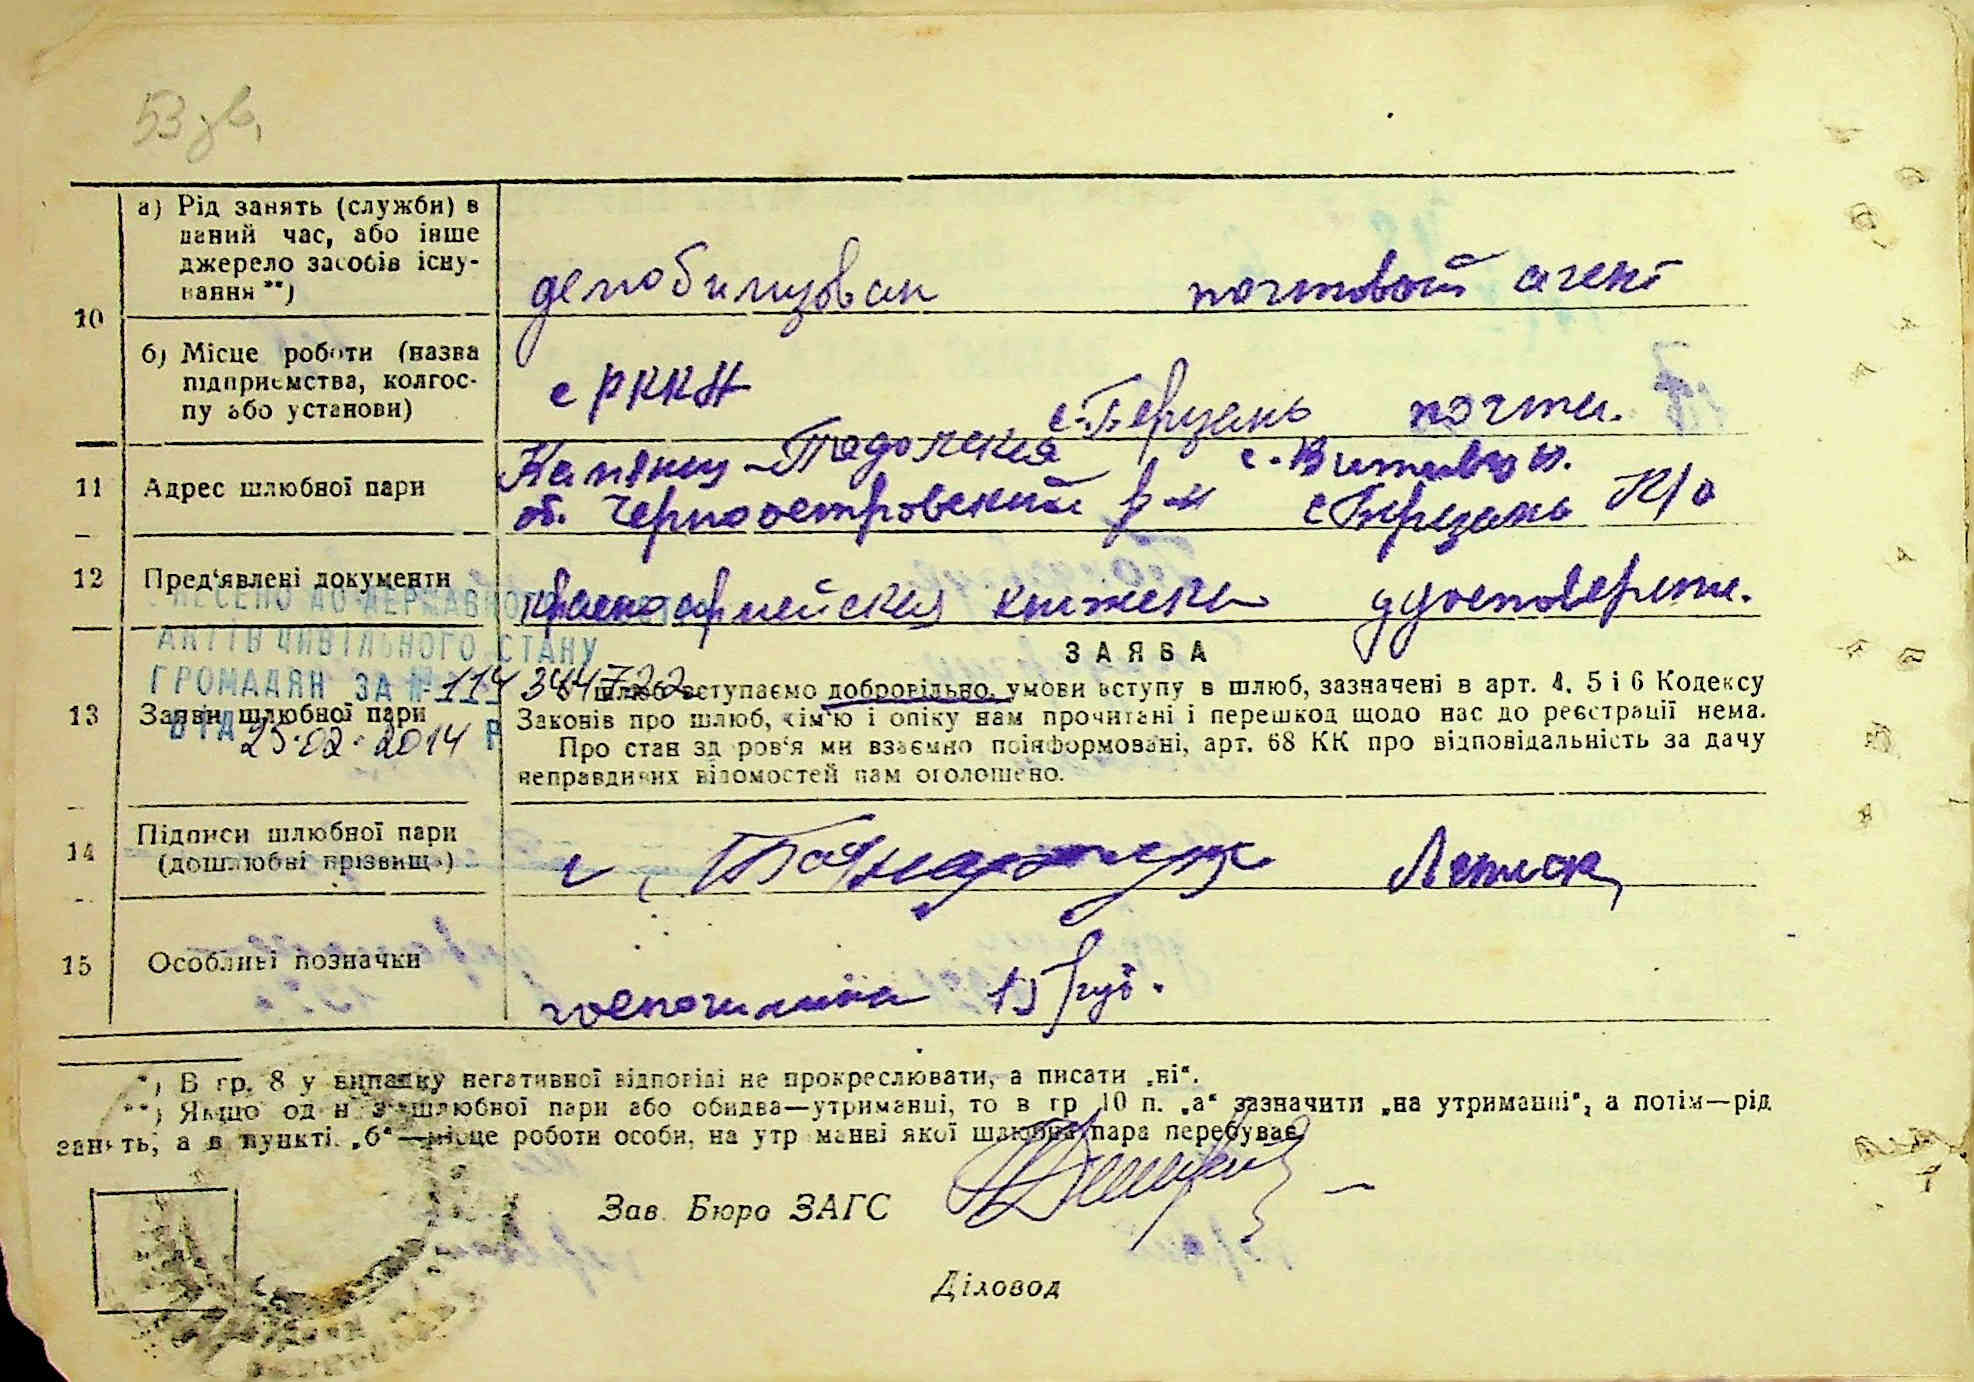 53 зв.
10
а) Рід занять (служби) в
даний час, або інше
джерело засобів існу-
вання **)
демобилизован почтовой агент
б) Місце роботи (назва
підприємства, колгос-
пу або установи)
с РККА
с. Березань почта.
11 Адрес шлюбної пари
Каменец-Подольская
об. Черноостровский р-н с Березань К/о
12 Пред'явлені документи красноармейская книжка удостоверен.
АКТІВ ЦИВІЛЬНОГО СТАНУ
ГРОМАДЯН ЗА №
ВІД 25.02.2014 Р
ЗАЯВА
13 Заяви шлюбної пари
шлюб вступаємо добровільно, умови вступу в шлюб, зазначені в арт. 4, 5 і 6 Кодексу
Законів про шлюб, сім'ю і опіку нам прочитані і перешкод щодо нас до реєстрації нема.
Про стан здоров'я ми взаємно поінформовані, арт. 68 КК про відповідальність за дачу
неправдивих відомостей нам оголошено.
14 Підписи шлюбної пари
(дошлюбні прізвища)
15 Особливі позначки
госпошлина 15 руб.
*) В гр. 8 у випадку негативної відповіді не прокреслювати, а писати „ні“.
**) Якщо один з шлюбної пари або обидва—утриманці, то в гр 10 п. „а“ зазначити „на утриманні“, а потім—рід
занять, а в пункті „б“—місце роботи особи, на утриманні якої шлюбна пара перебуває
Зав. Бюро ЗАГС
Діловод